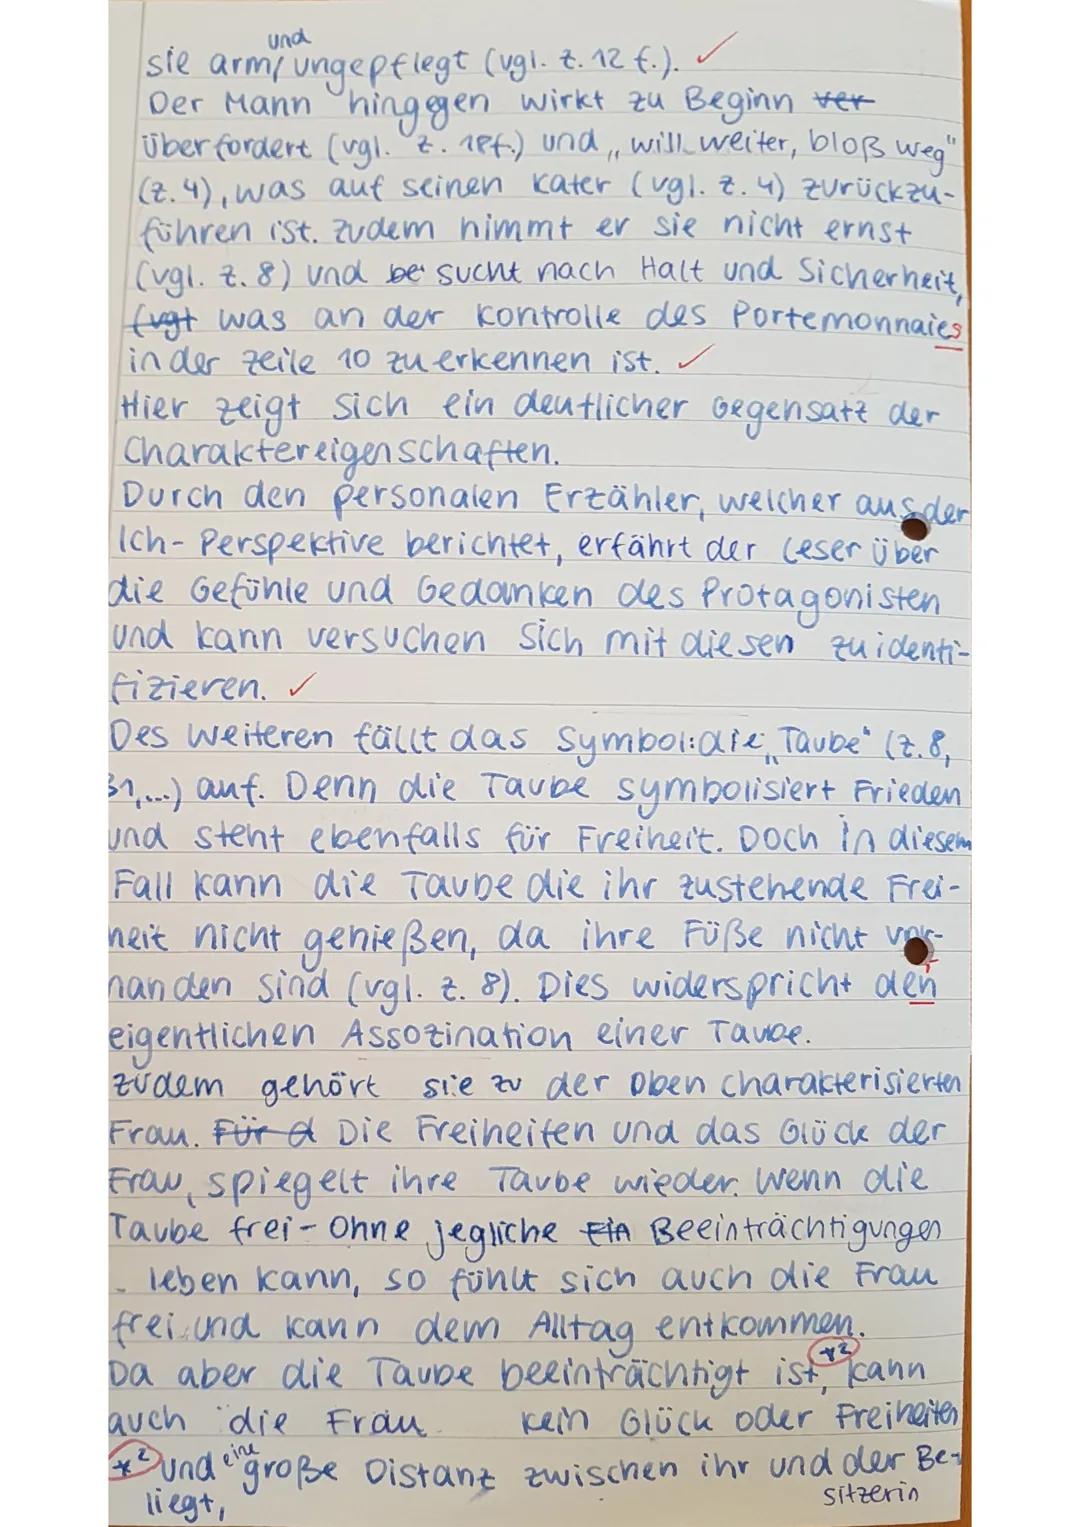 und
sie arm/ungepflegt (vgl. Z. 12 f.). ✓
Der Mann hingegen wirkt zu Beginn ver
überfordert (vgl. Z. 18f.) und „will weiter, bloß weg"
(Z. 4), was auf seinen Kater (vgl. Z. 4) zurückzu-
führen ist. Zudem nimmt er sie nicht ernst
(vgl. Z. 8) und be sucht nach Halt und Sicherheit,
(vgl was an der Kontrolle des Portemonnaies
in der Zeile 10 zu erkennen ist. ✓
Hier zeigt sich ein deutlicher Gegensatz der
Charaktereigenschaften.
Durch den personalen Erzähler, welcher aus der
Ich-Perspektive berichtet, erfährt der Leser über
die Gefühle und Gedanken des Protagonisten
und kann versuchen sich mit diesen zu identi-
fizieren. ✓
Des Weiteren fällt das Symbol: die „Taube" (Z. 8,
31,...) auf. Denn die Taube symbolisiert Frieden
und steht ebenfalls für Freiheit. Doch in diesem
Fall kann die Taube die ihr zustehende Frei-
heit nicht genießen, da ihre Füße nicht vor-
handen sind (vgl. Z. 8). Dies widerspricht den
r
eigentlichen Assozination einer Taube.
Zudem gehört sie zu der oben charakterisierten
Frau. Für d Die Freiheiten und das Glück der
Frau, spiegelt ihre Taube wieder. Wenn die
Taube frei - Ohne jegliche Ein Beeinträchtigungen
- leben kann, so fühlt sich auch die Frau
frei und kann dem Alltag entkommen.
Da aber die Taube beeinträchtigt ist *2, kann
auch die Frau kein Glück oder Freiheiten
*2 und eine große Distanz zwischen ihr und der Be-
sitzerin
liegt,